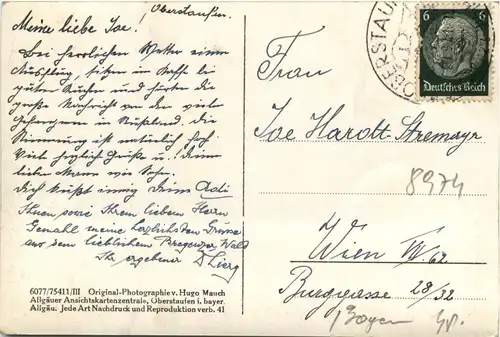 Oberstaufen.
Meine liebe Joe!
Bei herrlichem Wetter einen
Ausflug, sitzen im Kaffe bei
guten Kuchen und hörten die
große Nachricht von den viel
Gefangenen in Rußland. Die
Stimmung ist natürlich hoch.
Viel herzlich Grüße u.! Deinen
lieben Mann wie Sohn.
Dich küßt innig Deine Adi
Ihnen sowie Ihrem lieben Herrn
Gemahl meine herzlichsten Grüsse
aus dem lieblichen Bregenzer Wald
Ihr ergebener
6077/75411/III Original-Photographie v. Hugo Mauch
Allgäuer Ansichtskartenzentrale, Oberstaufen i. bayer.
Allgäu. Jede Art Nachdruck und Reproduktion verb. 41
OBERSTAU
6 6
Deutsches Reich
Frau
Joe Hardt-Stremayr
8974
Wien 62
Burggasse 28/32